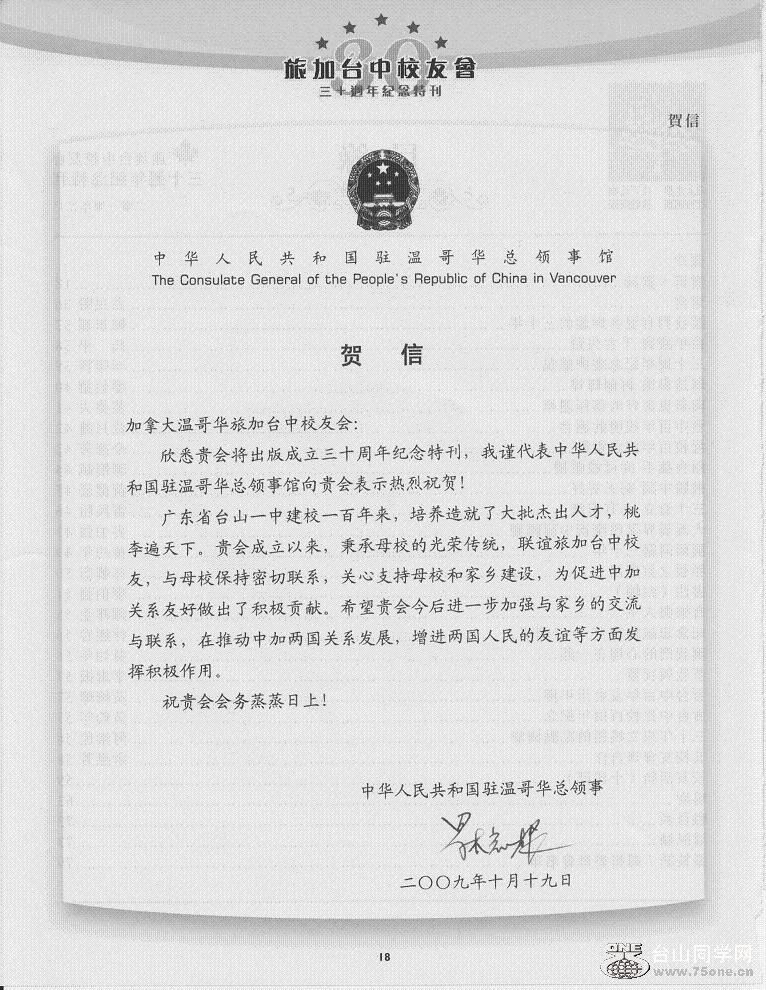 30
旅加台中校友會
三十週年紀念特刊
賀信
中华人民共和国驻温哥华总领事馆
The Consulate General of the People's Republic of China in Vancouver
贺 信
加拿大温哥华旅加台中校友会：
欣悉贵会将出版成立三十周年纪念特刊，我谨代表中华人民共
和国驻温哥华总领事馆向贵会表示热烈祝贺！
广东省台山一中建校一百年来，培养造就了大批杰出人才，桃
李遍天下。贵会成立以来，秉承母校的光荣传统，联谊旅加台中校
友，与母校保持密切联系，关心支持母校和家乡建设，为促进中加
关系友好做出了积极贡献。希望贵会今后进一步加强与家乡的交流
与联系，在推动中加两国关系发展，增进两国人民的友谊等方面发
挥积极作用。
祝贵会会务蒸蒸日上！
中华人民共和国驻温哥华总领事
二〇〇九年十月十九日
18
ONE 台山同学网
www.75one.cn